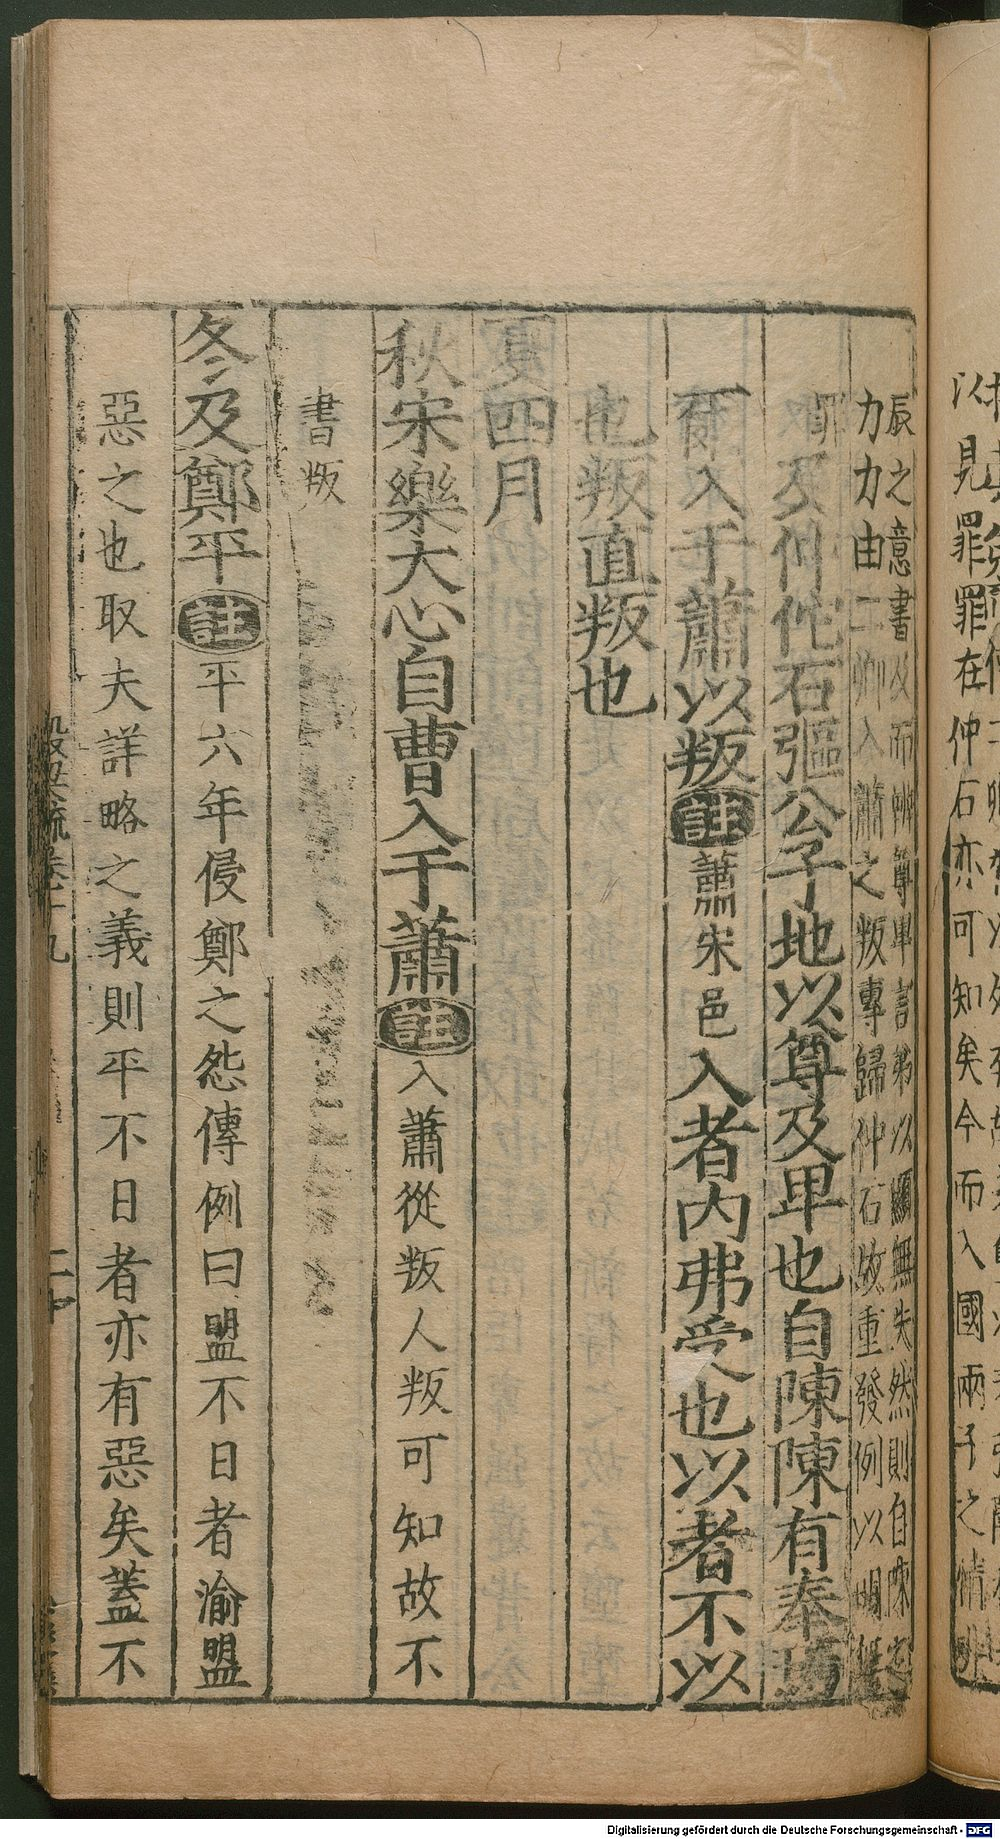 以見罪罪在仲石亦可知矣今而入國兩子之情
辰之意書及而辨尊卑言弟以顯無失然則自陳之
力力由二卿入蕭之叛專歸仲石故重發例以明
及仲佗石彄公子地以尊及卑也自陳陳有奉焉
爾入于蕭以叛註蕭宋邑入者內弗受也以者不以
也叛直叛也
夏四月
秋宋樂大心自曹入于蕭註入蕭從叛人叛可知故不
書叛
冬及鄭平註平六年侵鄭之怨傳例曰盟不日者渝盟
惡之也取夫詳略之義則平不日者亦有惡矣蓋不
穀梁疏卷十九
二十
Digitalisierung gefördert durch die Deutsche Forschungsgemeinschaft - DFG